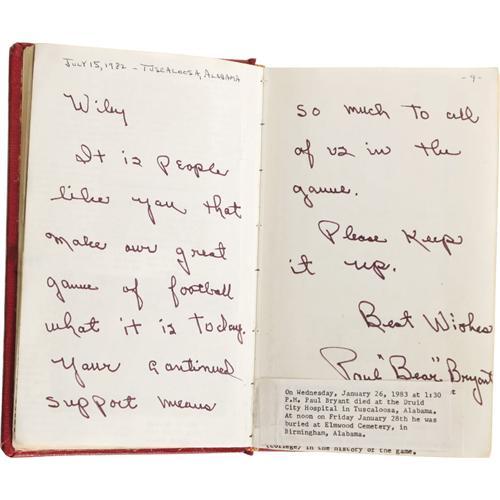 JULY 15, 1982 - TUSCALOOSA, ALABAMA
Wiley
It is people
like you that
make our great
game of football
what it is today.
Your continued
support means
- 9 -
so much to all
of us in the
game.
Please keep
it up.
Best Wishes
Paul "Bear" Bryant
On Wednesday, January 26, 1983 at 1:30
P.M. Paul Bryant died at the Druid
City Hospital in Tuscaloosa, Alabama.
At noon on Friday January 28th he was
buried at Elmwood Cemetery, in
Birmingham, Alabama.
(college) in the history of the game.